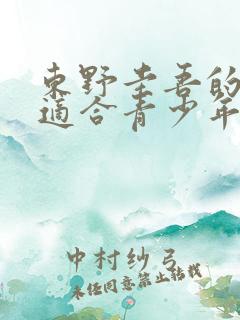 東野圭吾的
適合青少年
中村紗弓
未經同意禁止轉載